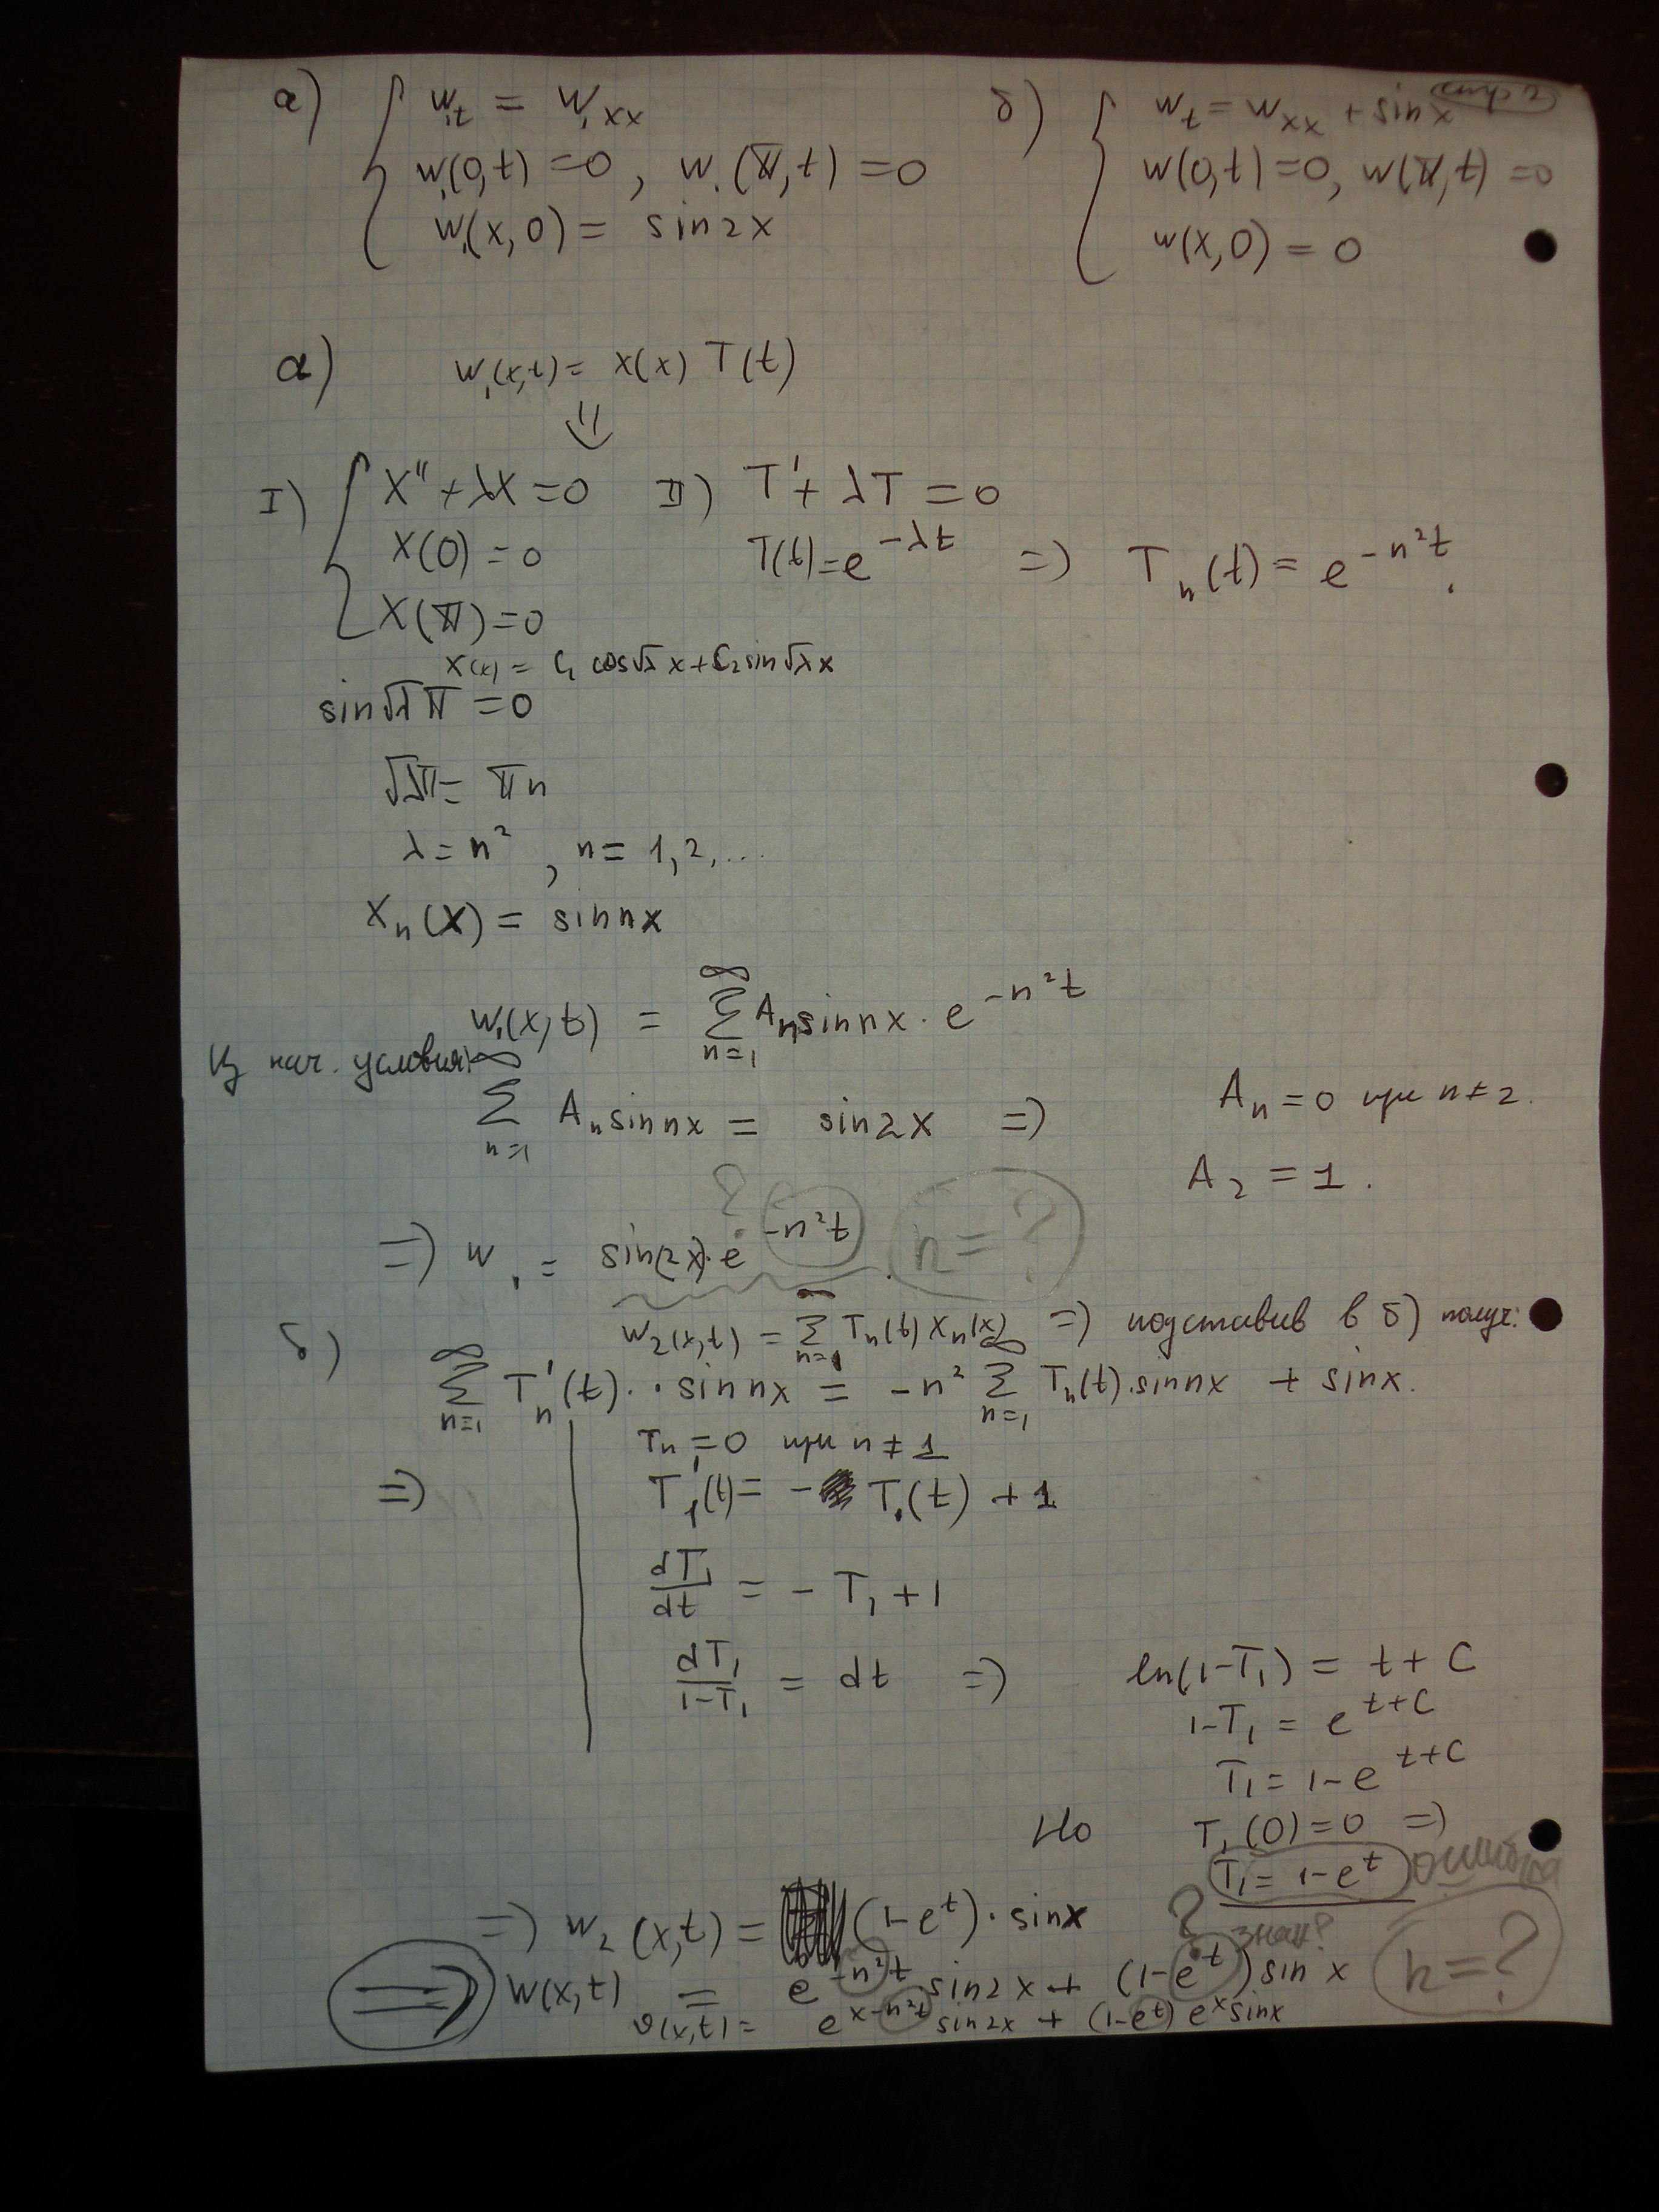 стр 2
а) { w₁t = w₁xx
w₁(0,t) = 0, w₁(π,t) = 0
w₁(x,0) = sin2x
б) { wt = wxx + sinx
w(0,t) = 0, w(π,t) = 0
w(x,0) = 0
а) w₁(x,t) = X(x) T(t)
⇓
I) { X'' + λX = 0
X(0) = 0
X(π) = 0
II) T' + λT = 0
T(t) = e^{-λt} => Tn(t) = e^{-n²t}.
X(x) = C₁ cos√λ x + C₂ sin√λ x
sin√λ π = 0
√λπ = πn
λ = n², n = 1,2,...
Xn(x) = sinnx
w₁(x,t) = ∑_{n=1}^∞ An sinnx · e^{-n²t}
Из нач. условия:
∑_{n=1}^∞ An sinnx = sin2x => An = 0 при n ≠ 2.
A₂ = 1.
=> w₁ = sin(2x)·e^{-n²t}. ? n = ?
б) w₂(x,t) = ∑_{n=1}^∞ Tn(t) Xn(x) => подставив в б) получ:
∑_{n=1}^∞ T'n(t) · · sinnx = -n² ∑_{n=1}^∞ Tn(t)·sinnx + sinx.
=> Tn = 0 при n ≠ 1
T₁'(t) = - T₁(t) + 1
dT₁/dt = - T₁ + 1
dT₁/(1-T₁) = dt => ln(1-T₁) = t + C
1-T₁ = e^{t+C}
T₁ = 1-e^{t+C}
Но T₁(0) = 0 =>
T₁ = 1-e^t ошибка
=> w₂(x,t) = (1-e^t)·sinx ? знак?
=> w(x,t) = e^{-n²t} sin2x + (1-e^t) sin x n = ?
v(x,t) = e^{x-n²t} sin2x + (1-e^t) e^x sinx